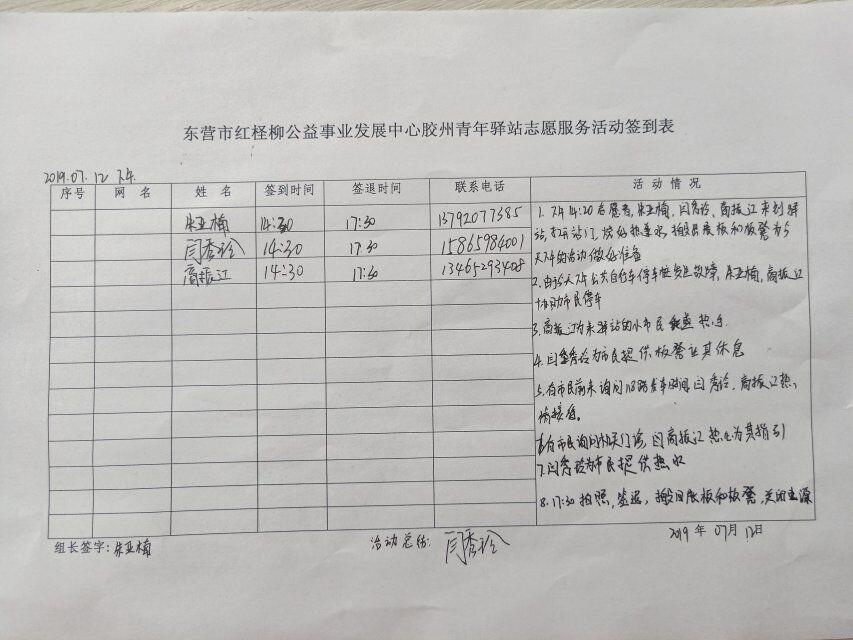 东营市红柽柳公益事业发展中心胶州青年驿站志愿服务活动签到表
2019.07.12 下午
序号 网名 姓名 签到时间 签退时间 联系电话 活动情况
朱亚楠 14:30 17:30 13792077385
闫秀玲 14:30 17:30 15865984001
高振江 14:30 17:30 13465293408
1. 下午14:20志愿者,朱亚楠,闫秀玲,高振江来到驿
站,打开站门,烧好热水,搬出展板和板凳为今
天下午的活动做好准备
2. 由于今天下午公共自行车停车桩发生故障,朱亚楠,高振江
协助市民停车
3. 高振江为来驿站的小市民 热水
4. 闫秀玲为市民提供板凳让其休息
5. 有市民前来询问118路发车时间闫秀玲,高振江热
情接待。
6. 有市民询问 门诊,闫高振江热心为其指引
7. 闫秀玲为市民提供热水
8. 17:30拍照,签退,搬回展板和板凳,关闭电源
组长签字:朱亚楠 活动总结:闫秀玲 2019年07月12日